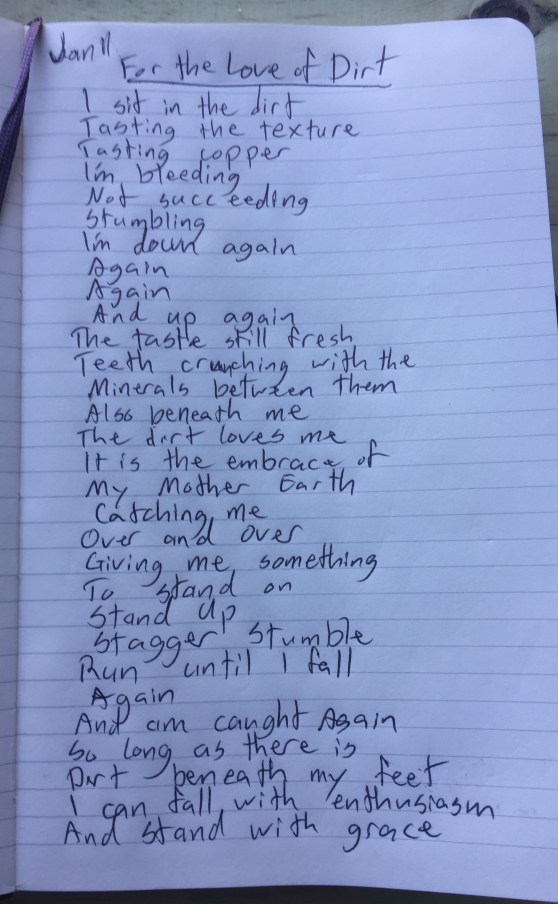 Jan 11
For the Love of Dirt
I sit in the dirt
Tasting the texture
Tasting copper
I'm bleeding
Not succeeding
Stumbling
I'm down again
Again
Again
And up again
The taste still fresh
Teeth crunching with the
Minerals between them
Also beneath me
The dirt loves me
It is the embrace of
My Mother Earth
Catching me
Over and over
Giving me something
To stand on
Stand up
Stagger stumble
Run until I fall
Again
And am caught Again
So long as there is
Dirt beneath my feet
I can fall with enthusiasm
And stand with grace